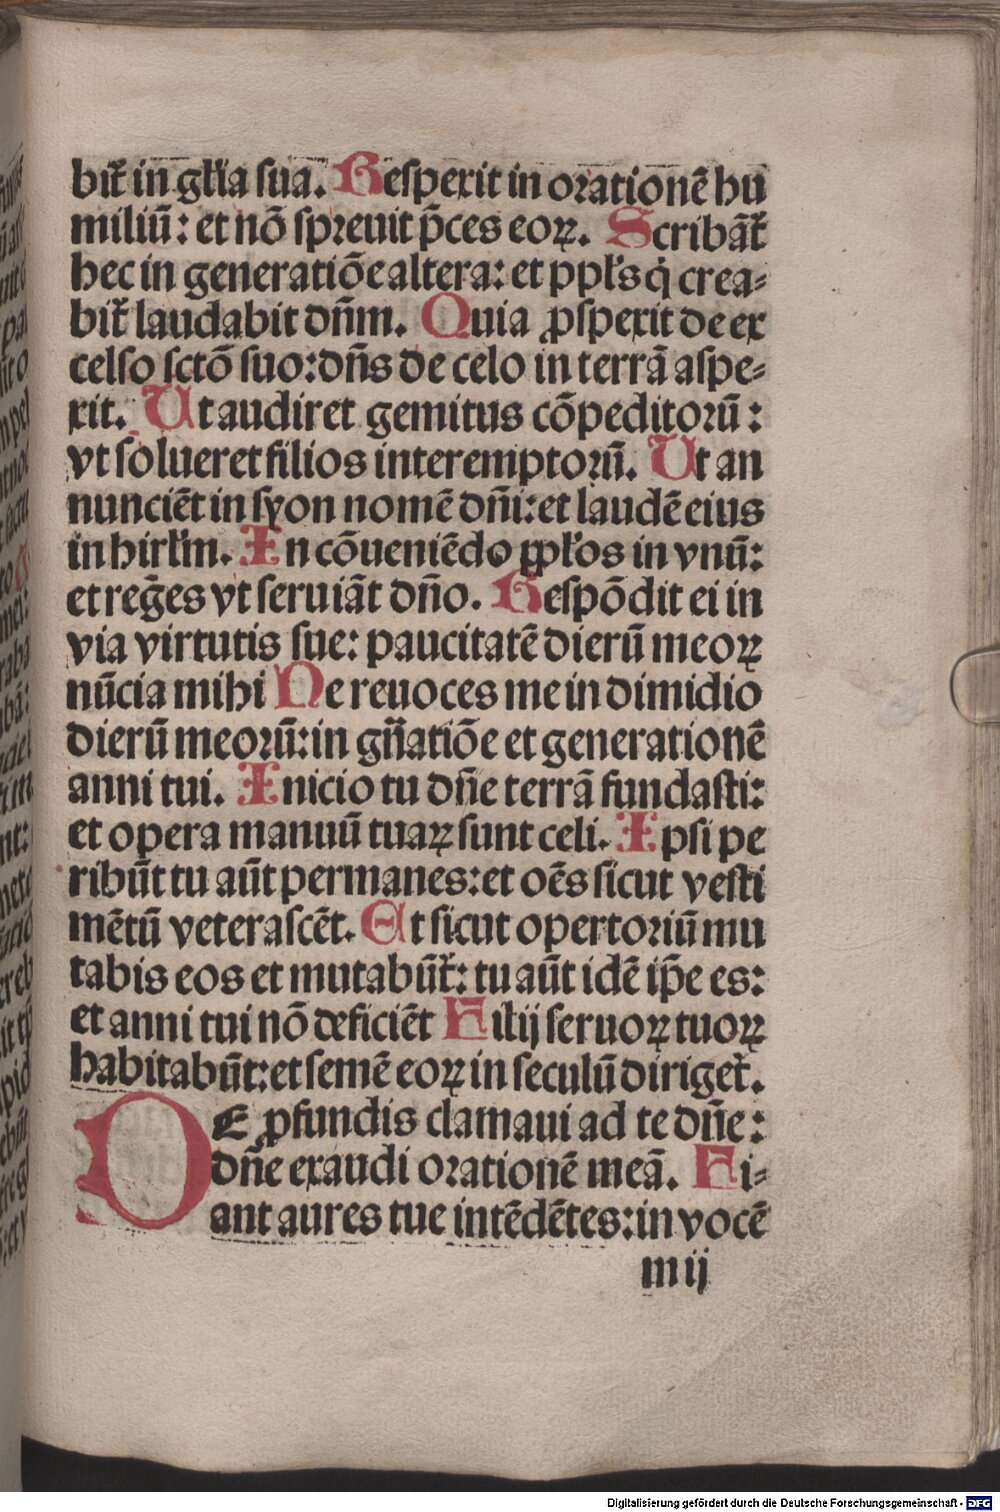 bit̃ in gl̃ia sua. Resperit in orationē hu
miliū: et nō spreuit p̄ces eoꝝ. Scribãt̃
hec in generatiōe altera: et ppl̃s q̇ crea⸗
bit̃ laudabit dñm. Quia ꝓsperit de ex
celso sctō suo: dñs de celo in terrā aspe⸗
xit. Ut audiret gemitus cōpeditorū:
vt solueret filios interemptorū. Ut an
nunciēt in syon nomē dñi: et laudē eius
in hirl̃m. In cōueniēdo ppl̃os in vnū:
et reḡes vt seruiāt dño. Respōdit ei in
via virtutis sue: paucitatē dierū meoꝝ
nūcia mihi Ne reuoces me in dimidio
dierū meorū: in gñatiōe et generationē
anni tui. Inicio tu dñe terrā fundasti:
et opera manuū tuaꝝ sunt celi. Ipsi pe
ribūt tu aūt permanes: et oēs sicut vesti
mētū veterascēt. Et sicut opertoriū mu
tabis eos et mutabūt̃: tu aūt idē ip̄e es:
et anni tui nō deficiēt Filij seruoꝝ tuoꝝ
habitabūt: et semē eoꝝ in seculū diriget̃.
DE ꝓfundis clamaui ad te dñe:
dñe exaudi orationē meā. Fi⸗
ant aures tue intēdētes: in vocē
m ij
Digitalisierung gefördert durch die Deutsche Forschungsgemeinschaft - DFG